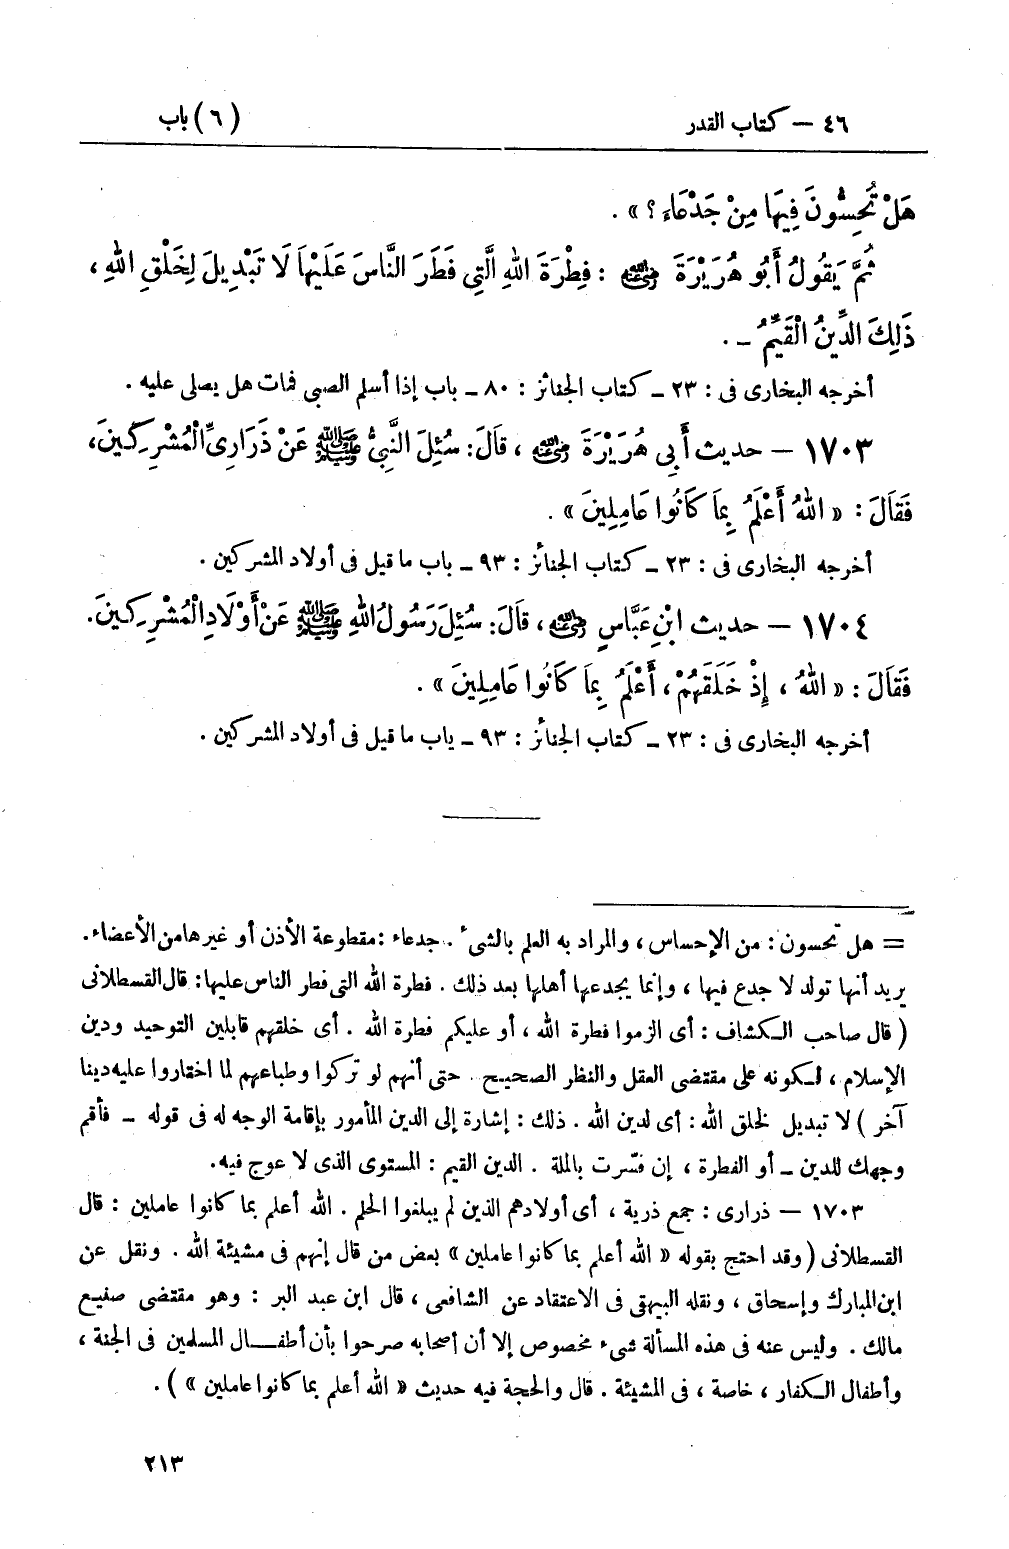 ٤٦ — كتاب القدر (٦) باب
هَلْ تُحِسُّونَ فِيهَا مِنْ جَدْعَاءَ؟ » .
ثُمَّ يَقُولُ أَبُو هُرَيْرَةَ رضي الله عنه : فِطْرَةَ اللهِ الَّتِي فَطَرَ النَّاسَ عَلَيْهَا لَا تَبْدِيلَ لِخَلْقِ اللهِ ،
ذَلِكَ الدِّينُ الْقَيِّمُ ـ .
أخرجه البخارى فى : ٢٣ ـ كتاب الجنائز : ٨٠ ـ باب إذا أسلم الصبى فمات هل يصلى عليه .
١٧٠٣ — حديث أَبِي هُرَيْرَةَ رضي الله عنه ، قَالَ : سُئِلَ النَّبِيُّ ﷺ عَنْ ذَرَارِىِّ الْمُشْرِكِينَ ،
فَقَالَ : « اللهُ أَعْلَمُ بِمَا كَانُوا عَامِلِينَ » .
أخرجه البخارى فى : ٢٣ ـ كتاب الجنائز : ٩٣ ـ باب ما قيل فى أولاد المشركين .
١٧٠٤ — حديث ابْنِ عَبَّاسٍ رضي الله عنه ، قَالَ : سُئِلَ رَسُولُ اللهِ ﷺ عَنْ أَوْلَادِ الْمُشْرِكِينَ .
فَقَالَ : « اللهُ ، إِذْ خَلَقَهُمْ ، أَعْلَمُ بِمَا كَانُوا عَامِلِينَ » .
أخرجه البخارى فى : ٢٣ ـ كتاب الجنائز : ٩٣ ـ باب ما قيل فى أولاد المشركين .
= هل تحسون : من الإحساس ، والمراد به العلم بالشىء . جدعاء : مقطوعة الأذن أو غيرها من الأعضاء .
يريد أنها تولد لا جدع فيها ، وإنما يجدعها أهلها بعد ذلك . فطرة الله التى فطر الناس عليها : قال القسطلانى
( قال صاحب الكشاف : أى الزموا فطرة الله ، أو عليكم فطرة الله . أى خلقهم قابلين التوحيد ودين
الإسلام ، لكونه على مقتضى العقل والنظر الصحيح . حتى أنهم لو تركوا وطباعهم لما اختاروا عليه دينا
آخر ) لا تبديل لخلق الله : أى لدين الله . ذلك : إشارة إلى الدين المأمور بإقامة الوجه له فى قوله ـ فأقم
وجهك للدين ـ أو الفطرة ، إن فسّرت بالملة . الدين القيم : المستوى الذى لا عوج فيه .
١٧٠٣ — ذرارى : جمع ذرية ، أى أولادهم الذين لم يبلغوا الحلم . الله أعلم بما كانوا عاملين : قال
القسطلانى ( وقد احتج بقوله « الله أعلم بما كانوا عاملين » بعض من قال إنهم فى مشيئة الله . ونقل عن
ابن المبارك وإسحاق ، ونقله البيهقى فى الاعتقاد عن الشافعى ، قال ابن عبد البر : وهو مقتضى صنيع
مالك . وليس عنه فى هذه المسألة شىء مخصوص إلا أن أصحابه صرحوا بأن أطفال المسلمين فى الجنة ،
وأطفال الكفار ، خاصة ، فى المشيئة . قال والحجة فيه حديث « الله أعلم بما كانوا عاملين » ) .
٢١٣